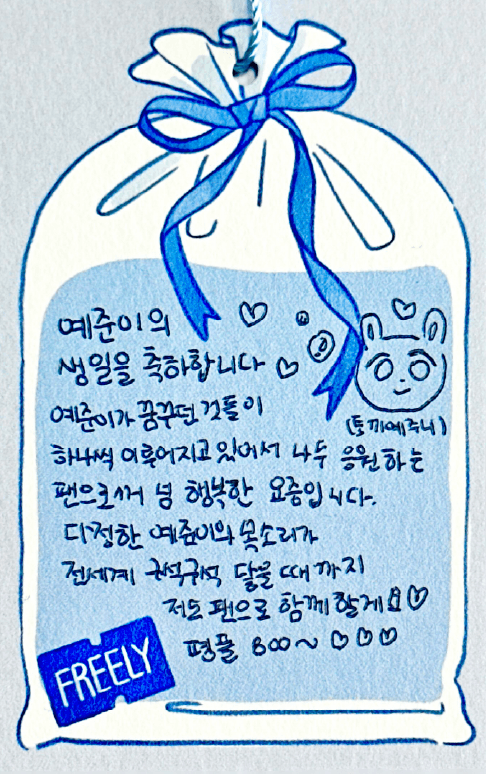 예준이의
생일을 축하합니다
예준이가 꿈꾸던 것들이
(토끼예주니)
하나씩 이루어지고 있어서 나두 응원하는
팬으로써 넘 행복한 요즘입니다.
다정한 예준이의 목소리가
전세계 구석구석 닿을 때까지
저도 팬으로 함께 할게요♡
평플 600~ ♡♡♡
FREELY